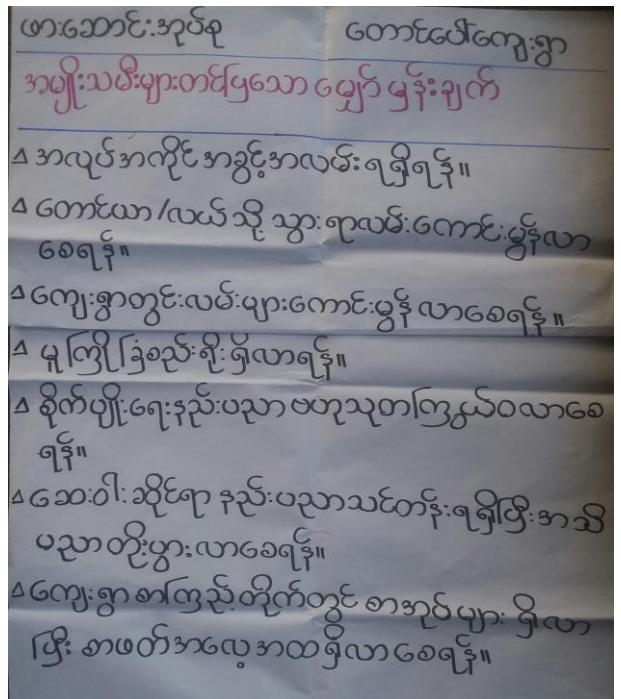 ဖားဆောင်းအုပ်စု တောင်ပေါ်ကျေးရွာ
အမျိုးသမီးများတင်ပြသော မျှော်မှန်းချက်
∆ အလုပ်အကိုင်အခွင့်အလမ်းရရှိရန်။
∆ တောင်ယာ/လယ်သို့ သွားရာလမ်းကောင်းမွန်လာ
စေရန်။
∆ ကျေးရွာတွင်းလမ်းများကောင်းမွန်လာစေရန်။
∆ မူကြိုခြံစည်းရိုးရှိလာရန်။
∆ စိုက်ပျိုးရေးနည်းပညာ ဗဟုသုတကြွယ်ဝလာစေ
ရန်။
∆ ဆေးဝါးဆိုင်ရာ နည်းပညာသင်တန်းရရှိပြီးအသိ
ပညာတိုးပွားလာစေရန်။
∆ ကျေးရွာစာကြည့်တိုက်တွင် စာအုပ်များ ရှိလာ
ပြီး စာဖတ်အလေ့အထရှိလာစေရန်။